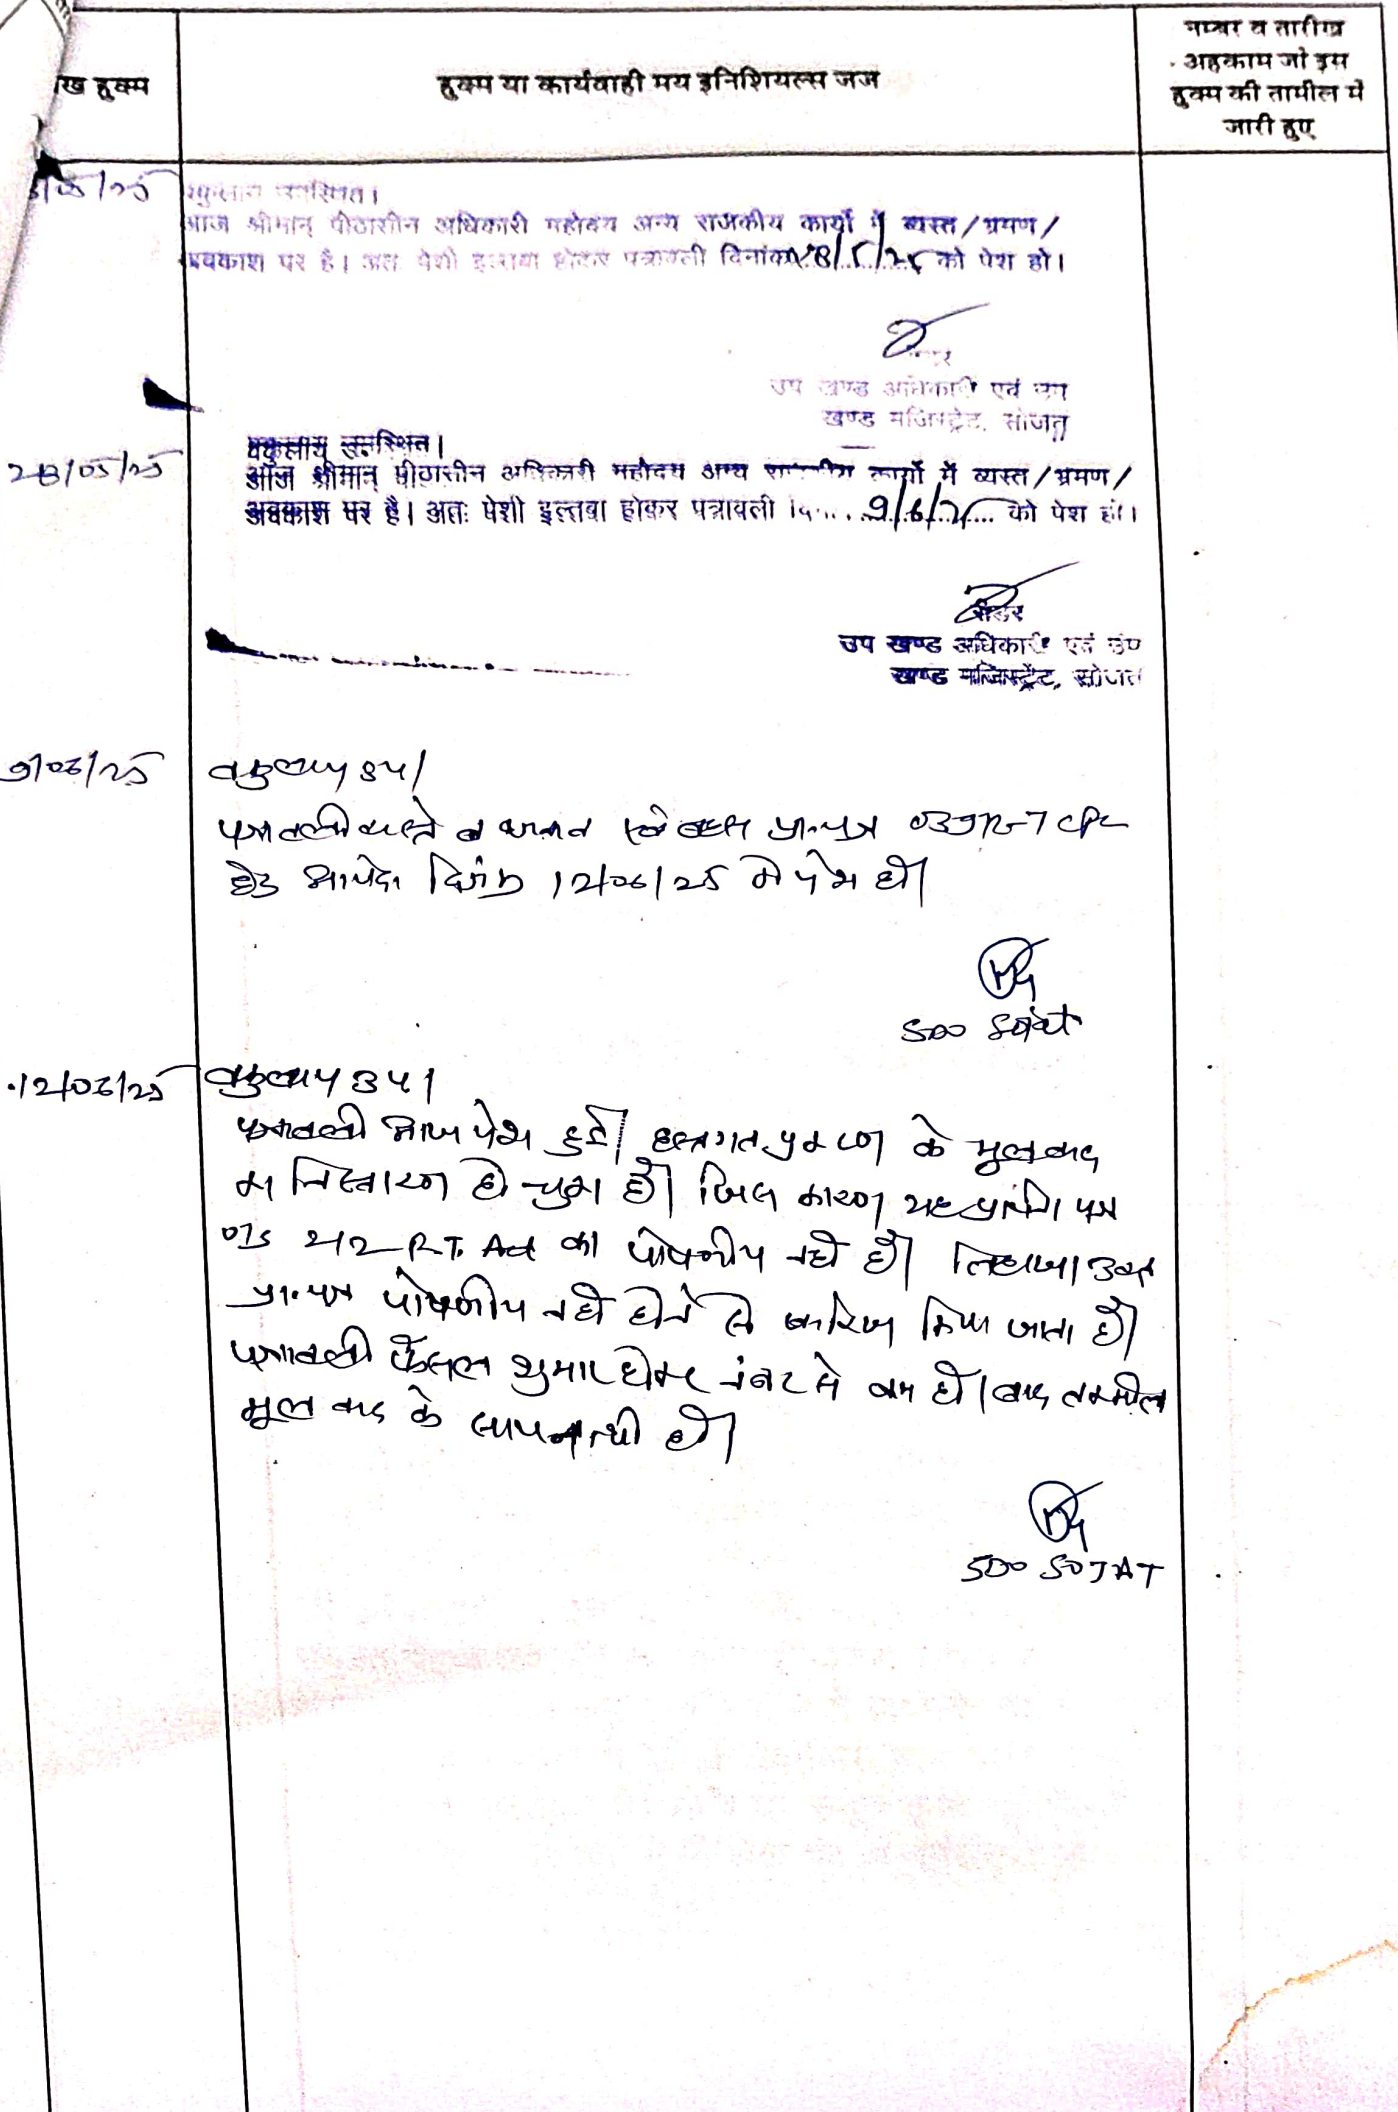 नम्बर व तारीख
ख हुक्म
हुक्म या कार्यवाही मय इनिशियल्स जज
अहकाम जो इस
हुक्म की तामील में
जारी हुए
उपस्थित।
आज श्रीमान् पीठासीन अधिकारी महोदय अन्य राजकीय कार्यों में व्यस्त/भ्रमण/
अवकाश पर है। अतः पेशी इल्तवा होकर पत्रावली दिनांक 28/5/25 को पेश हो।
उप खण्ड अधिकारी एवं उप
खण्ड मजिस्ट्रेट, सोजत
28/05/25
वकुलाय उपस्थित।
आज श्रीमान् पीठासीन अधिकारी महोदय अन्य राजकीय कार्यों में व्यस्त/भ्रमण/
अवकाश पर है। अतः पेशी इल्तवा होकर पत्रावली 9/6/25 को पेश हो।
रीडर
उप खण्ड अधिकारी एवं उप
खण्ड मजिस्ट्रेट, सोजत
9/06/25
वकुलाय उप।
पत्रावली वास्ते बहस प्रा.पत्र CPC
हेतु दिनांक 12/06/25 को पेश हो।
SDO Sojat
12/06/25
वकुलाय उप।
पत्रावली आज पेश हुई। हस्तगत प्रकरण के मूल वाद
का निस्तारण हो चुका है। जिस कारण यह प्रार्थना पत्र
212 R.T. Act का पोषणीय नही है। लिहाजा उक्त
प्रा.पत्र पोषणीय नही होने से खारिज किया जाता है।
पत्रावली फैसल शुमार होकर नंबर से कम हो। बाद तकमील
मूल वाद के साथ नत्थी हो।
SDO SOJAT